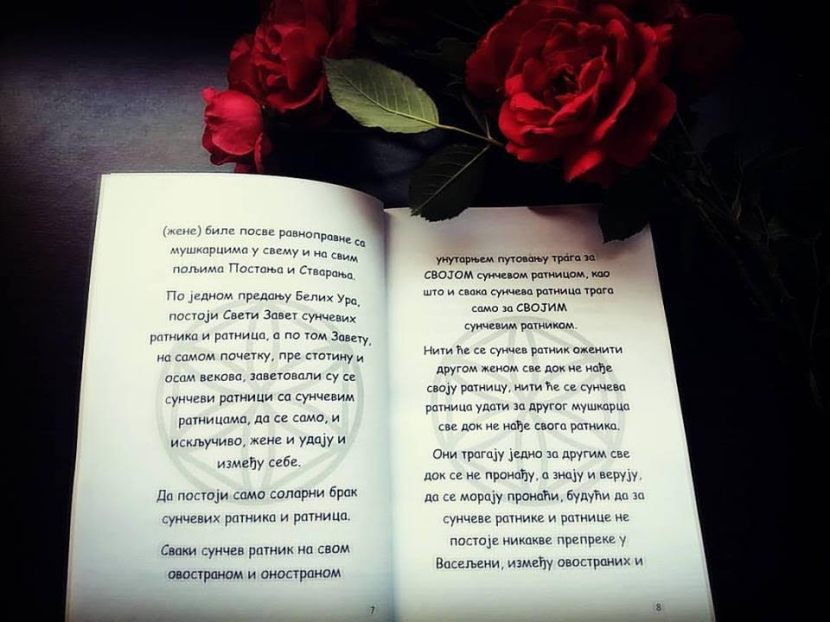 (жене) биле посве равноправне са
мушкарцима у свему и на свим
пољима Постања и Стварања.
По једном предању Белих Ура,
постоји Свети Завет сунчевих
ратника и ратница, а по том Завету,
на самом почетку, пре стотину и
осам векова, заветовали су се
сунчеви ратници са сунчевим
ратницама, да се само, и
искључиво, жене и удају и
између себе.
Да постоји само соларни брак
сунчевих ратника и ратница.
Сваки сунчев ратник на свом
овостраном и оностраном
7
унутарњем путовању трага за
СВОЈОМ сунчевом ратницом, као
што и свака сунчева ратница трага
само за СВОЈИМ
сунчевим ратником.
Нити ће се сунчев ратник оженити
другом женом све док не нађе
своју ратницу, нити ће се сунчева
ратница удати за другог мушкарца
све док не нађе свога ратника.
Они трагају једно за другим све
док се не пронађу, а знају и верују,
да се морају пронаћи, будући да за
сунчеве ратнике и ратнице не
постоје никакве препреке у
Васељени, између овостраних и
8